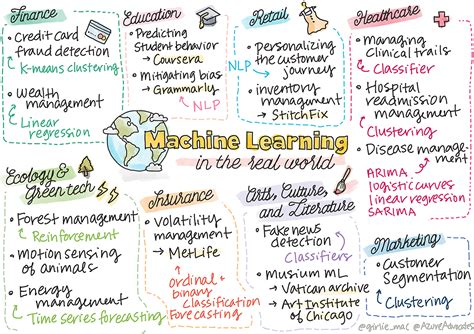 Finance
• Credit card
fraud detection
→ K-means clustering
• Wealth
management
→ Linear
regression
Education
• Predicting
Student behavior
→ Coursera
• Mitigating bias
→ Grammarly
→ NLP
Retail
• personalizing
the customer
journey
NLP
• inventory
management
→ StitchFix
Healthcare
• Managing
Clinical trails
→ Classifier
• Hospital
readmission
management
→ Clustering
• Disease manage
ment
ARIMA
logistic curves
linear regression
SARIMA
Machine Learning
in the real world
Ecology &
Green tech
• Forest management
→ Reinforcement
• Motion sensing
of animals
• Energy
management
→ Time series forecasting
Insurance
• Volatility
management
→ MetLife
ordinal +
binary
Classification
Forecasting
Arts, Culture,
and Literature
• Fake news
detection
→ Classifiers
• Musium ML
→ Vatican archive
→ Art Institute
of Chicago
Marketing
• Customer
Segmentation
→ Clustering
@girlie_mac @AzureAdvocates